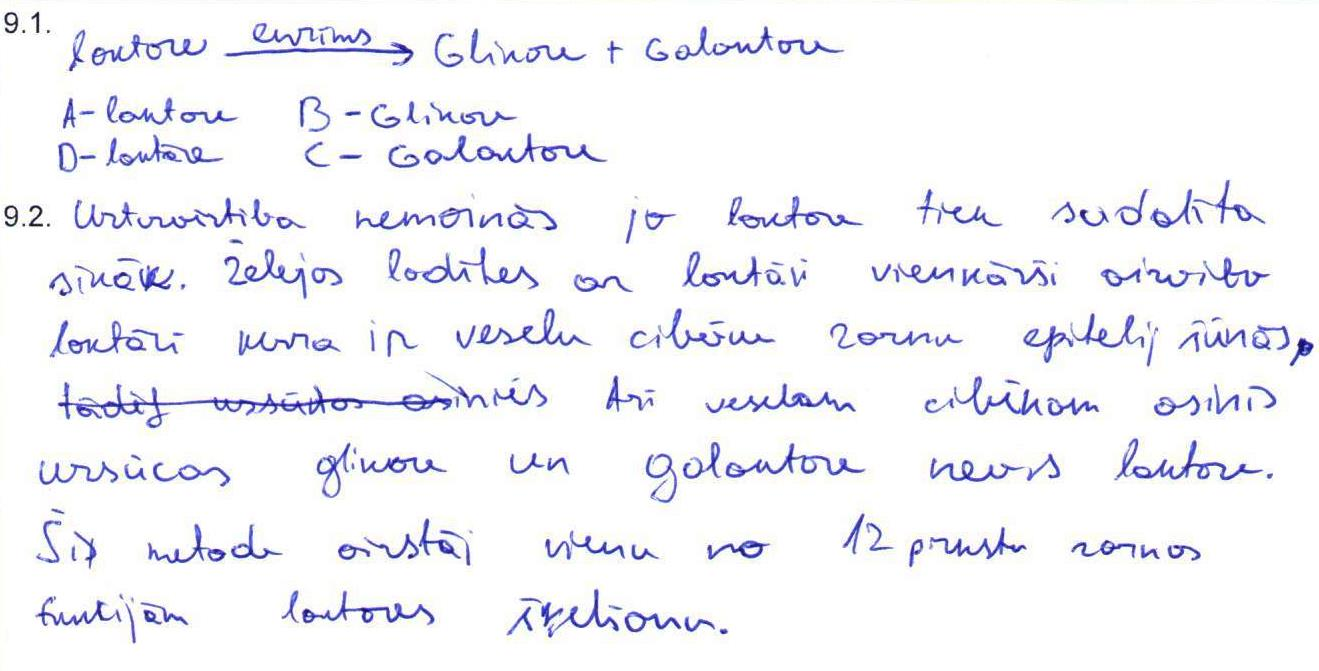 9.1. laktoze enzīms → Glikoze + Galaktoze
A - laktoze B - Glikoze
D - laktāze C - Galaktoze
9.2. Uzturvērtība nemainās jo laktoze tiek sadalīta
sīkāk. Želejas lodītes ar laktāzi vienkārši aizvieto
laktāzi kura ir veselu cilvēku zarnu epitēlij šūnās,
tādēļ uzsūktos asinīs Arī veselam cilvēkam asinīs
uzsūcas glikoze un galaktoze nevis laktoze.
Šis metode aizstāj vienu no 12 pirkstu zarnas
funkcijām laktozes